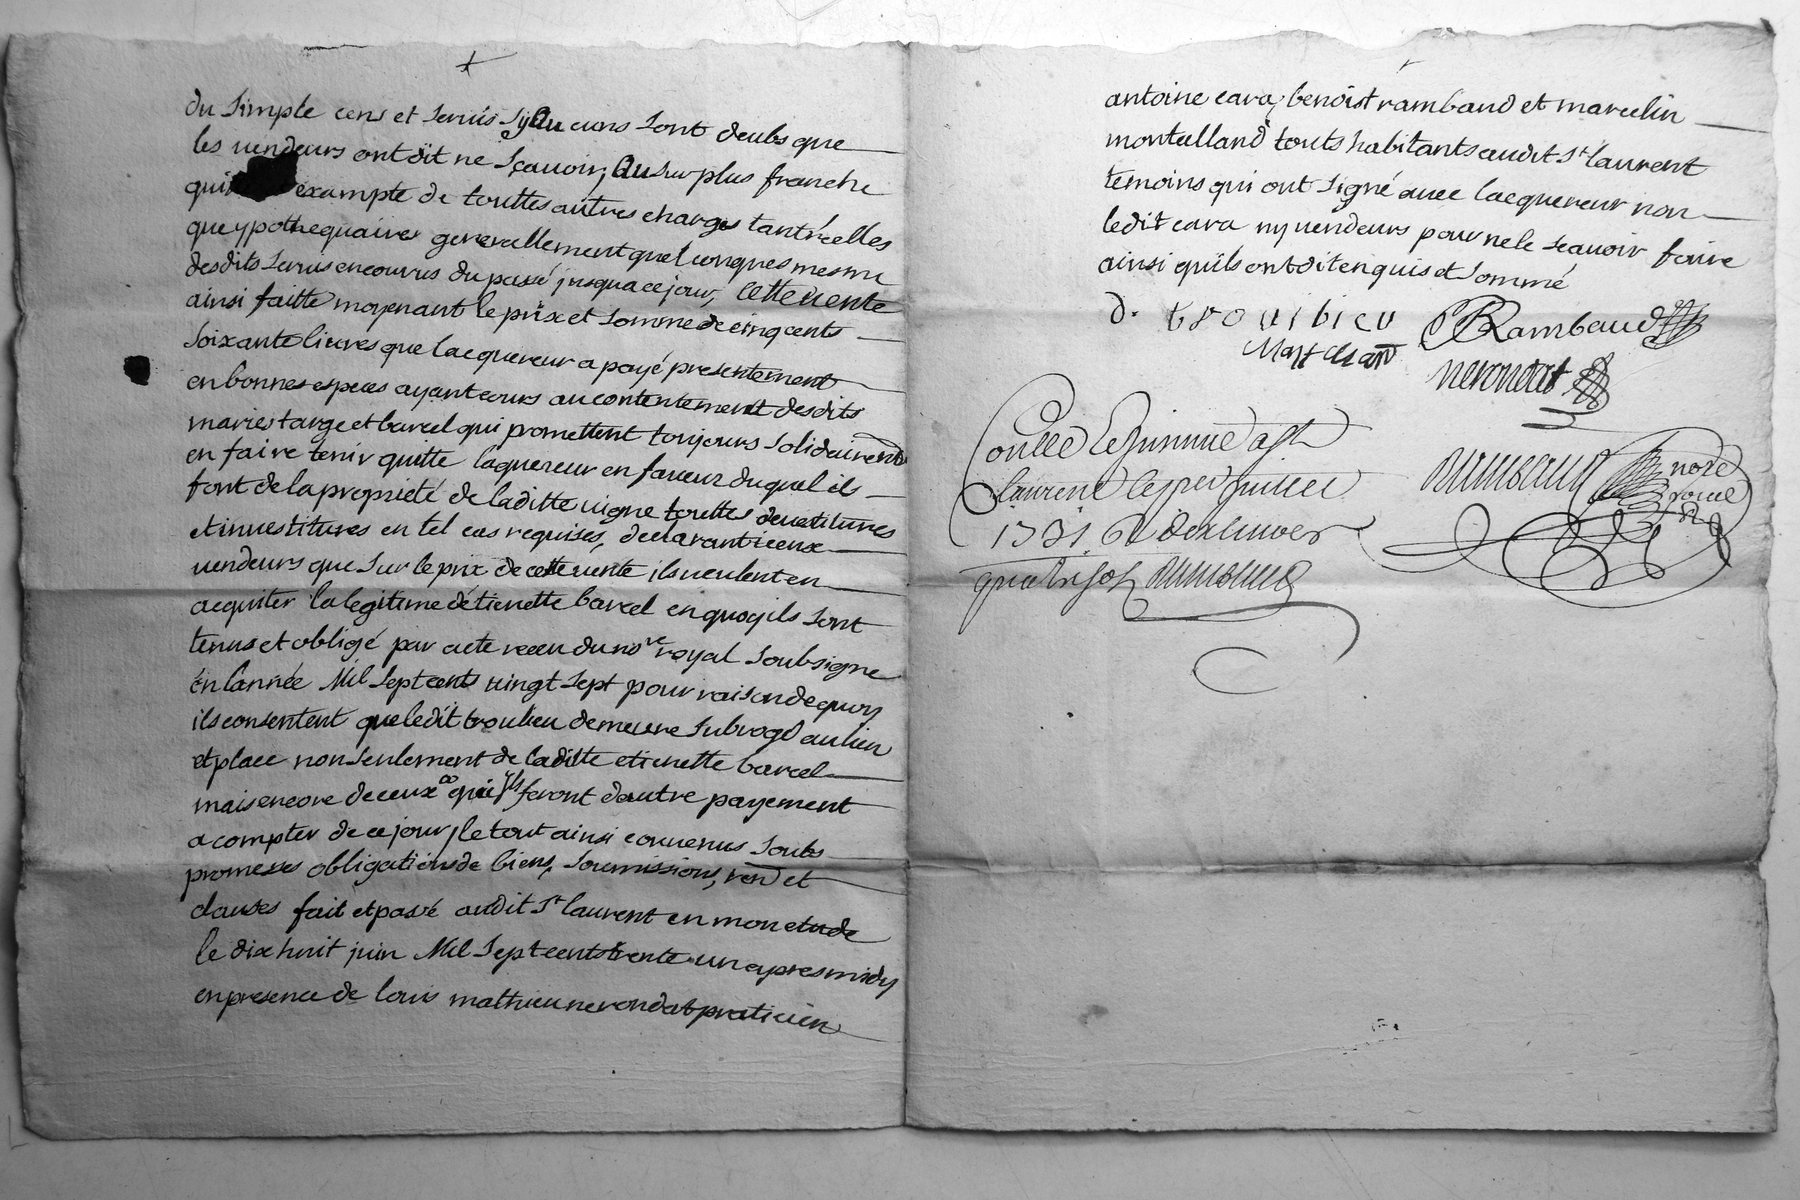 du simple cens et servis sy Aucuns sont deubs que
les vendeurs ont dit ne sçavoir, Au surplus franche
exampte de touttes autres charges tant réelles
que ypothequaires generallement quelconques mesme
desdits servis encourus du passé jusqua ce jour, Cette vente
ainsi faitte moyenant le prix et somme de cinq cents
soixante livres que lacquereur a payé presentement
en bonnes especes ayant cours au contentement desdits
mariés targe et barcel qui promettent toujours solidairemt
en faire tenir quitte laquereur en faveur duquel ils
font de la propriété de laditte vigne touttes devetitures
et investitures en tel cas requises, declarant iceux
vendeurs que sur le prix de cette vente ils veulent en
acquiter la legitime détienette barcel en quoy ils sont
tenus et obligé par acte receu du nore royal soubsigne
en lannée Mil sept cents vingt sept pour raison de quoy
ils consentent que ledit troulieu demeure subrogé au lieu
et place non seulement de laditte etienette barcel
mais encore de ceux a qui ils feront dautre payement
a compter de ce jour, le tout ainsi convenus soubs
promesses obligations de biens, soumissions, ren et
clauses fait et passé audit St laurent en mon etude
le dix huit juin Mil sept cents trente un apres midy
en presence de louis mathieu nerondat praticien
antoine cara, benoist rambaud et marcelin
montalland touts habitants audit St laurent
temoins qui ont signé avec lacquereur non
ledit cara ny vendeurs pour ne le scavoir faire
ainsi quils ont dit enquis et sommé
D. trouibieu
PRambaud
nerondat
laurent le per juillet
1731
Rambaud nore
royal